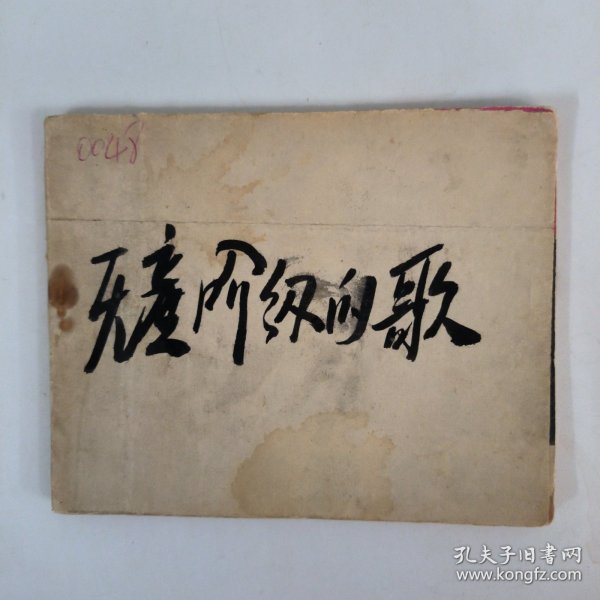 0048
无产阶级的歌
孔夫子旧书网
www.kongfz.com